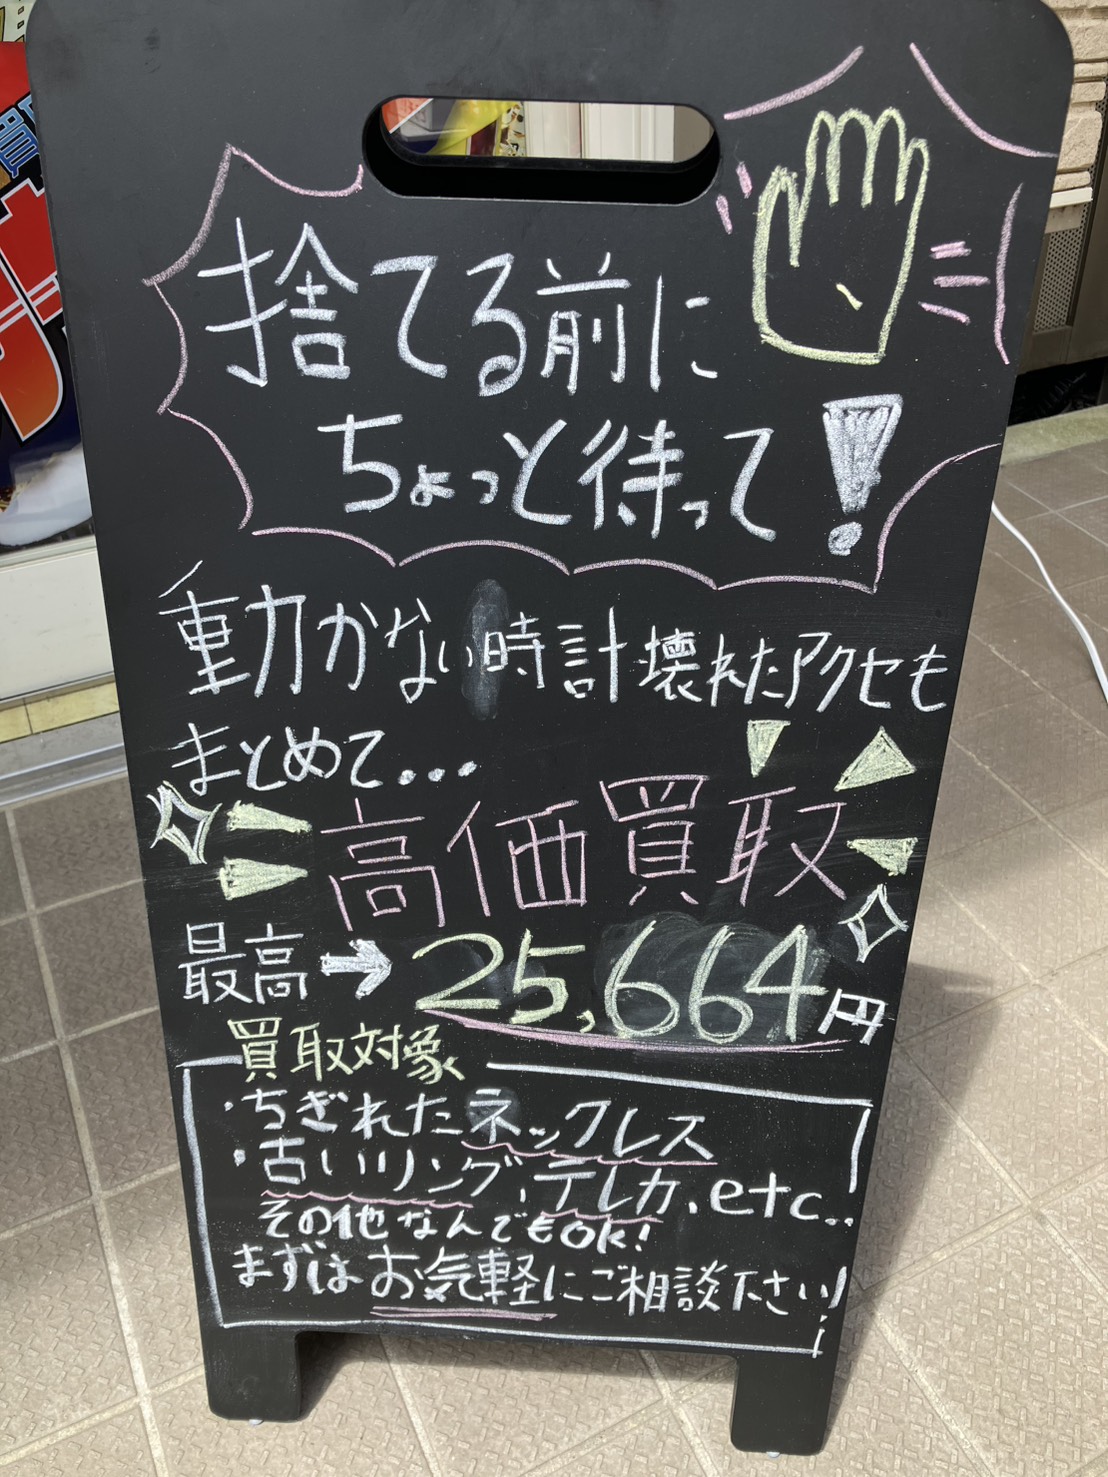 捨てる前に
ちょっと待って!
動かない時計壊れたアクセも
まとめて...
高価買取
最高→25,664円
買取対象
・ちぎれたネックレス
・古いリング、テレカ、etc..
その他なんでもOK!
まずはお気軽にご相談下さい!
買